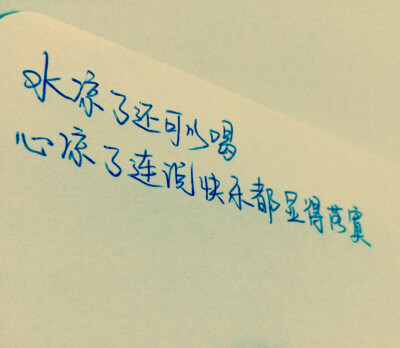 水凉了还可以喝
心凉了连说快乐都显得落寞